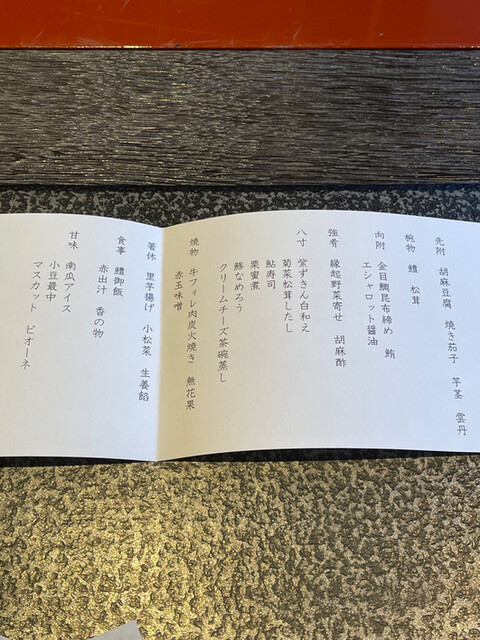 先附 胡麻豆腐 焼き茄子 芋茎 雲丹
椀物 鱧 松茸
向附 金目鯛昆布締め 鮪
エシャロット醤油
強肴 縁起野菜寄せ 胡麻酢
八寸 紫ずきん白和え
菊菜松茸したし
鮎寿司
栗蜜煮
鯵なめろう
クリームチーズ茶碗蒸し
焼物 牛フィレ肉炭火焼き 無花果
赤玉味噌
箸休 里芋揚げ 小松菜 生姜餡
食事 鱧御飯
赤出汁 香の物
甘味 南瓜アイス
小豆最中
マスカット ピオーネ